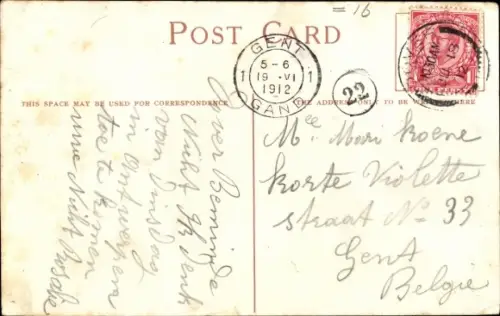 = 16
POST CARD
GENT
1 5-6 1
19 VI
1912
GAND
22
THIS SPACE MAY BE USED FOR CORRESPONDENCE
(THE ADDRESS ONLY TO BE WRITTEN HERE
Beminde
Nicht Ik denk
van Dinsdag
in Antwerpen
toe te komen
uwe Nicht
Mcc Mari
korte Violette
straat No 33
Gent
Belgie